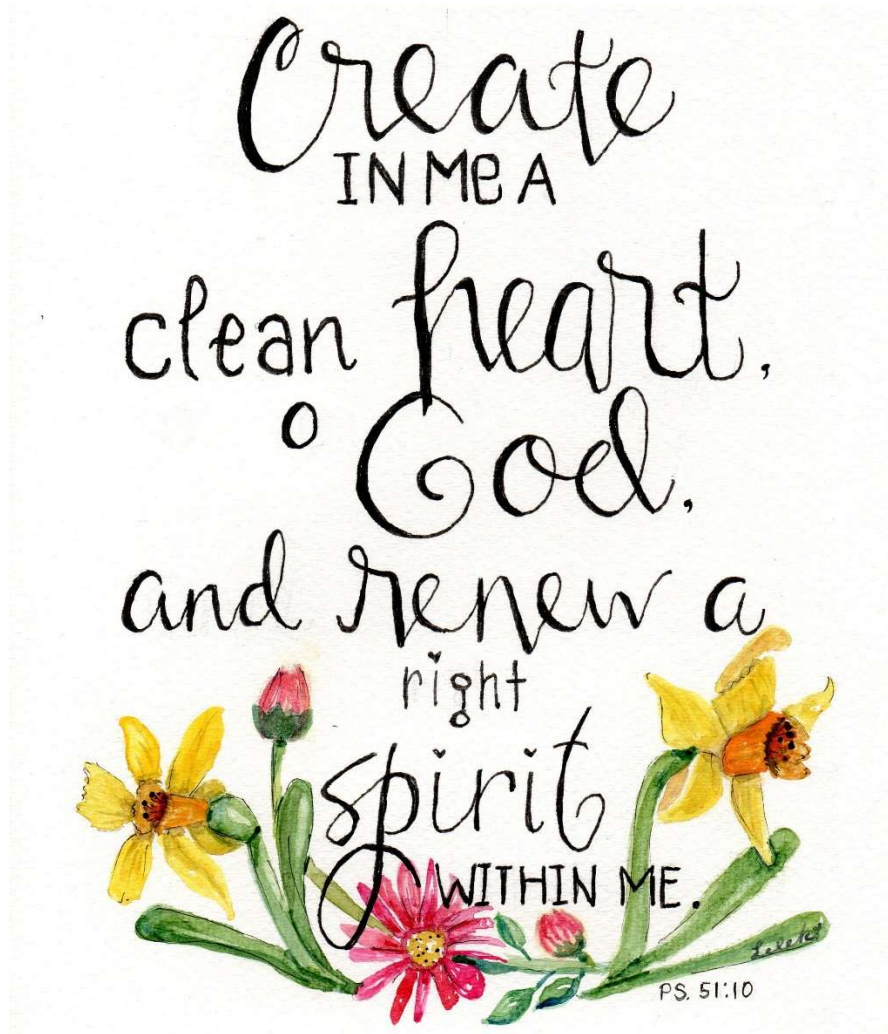 Create
IN Me A
clean heart,
O God,
and renew a
right
spirit
WITHIN ME.
PS. 51:10